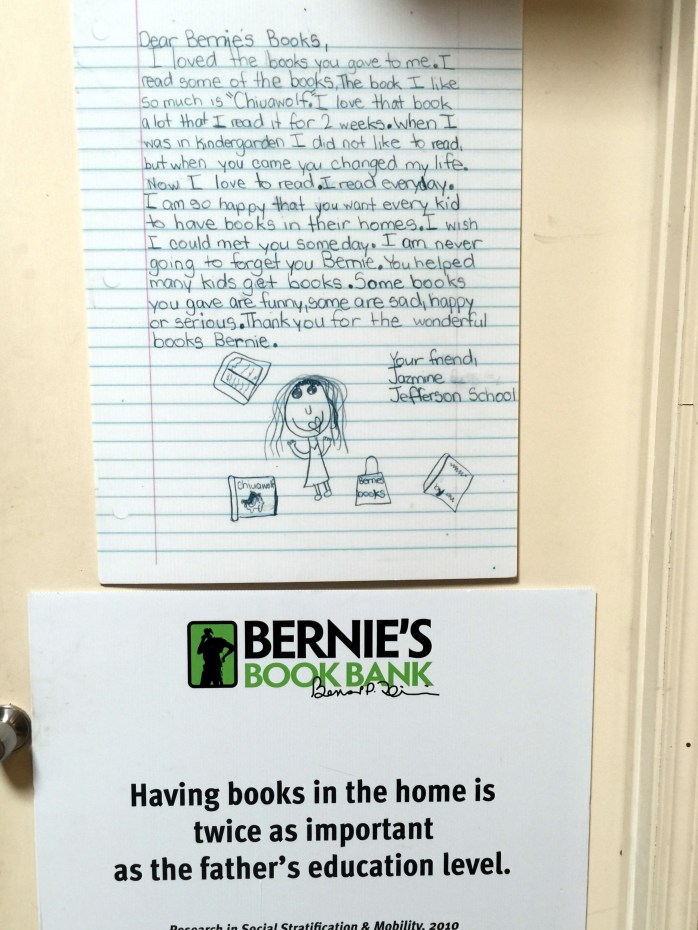 Dear Bernie's Books,
I loved the books you gave to me. I
read some of the books, The book I like
so much is "Chiuawolf". I love that book
alot that I read it for 2 weeks. When I
was in Kindergarden I did not like to read,
but when you came you changed my life.
Now I love to read. I read everyday.
I am so happy that you want every kid
to have books in their homes. I wish
I could met you some day. I am never
going to forget you Bernie. You helped
many kids get books. Some books
you gave are funny, some are sad, happy
or serious. Thank you for the wonderful
books Bernie.
Your friend,
Jazmine
Jefferson School
Chiuawolf
Bernie
books
BERNIE'S
BOOK BANK
Having books in the home is
twice as important
as the father's education level.
Research in Social Stratification & Mobility, 2010